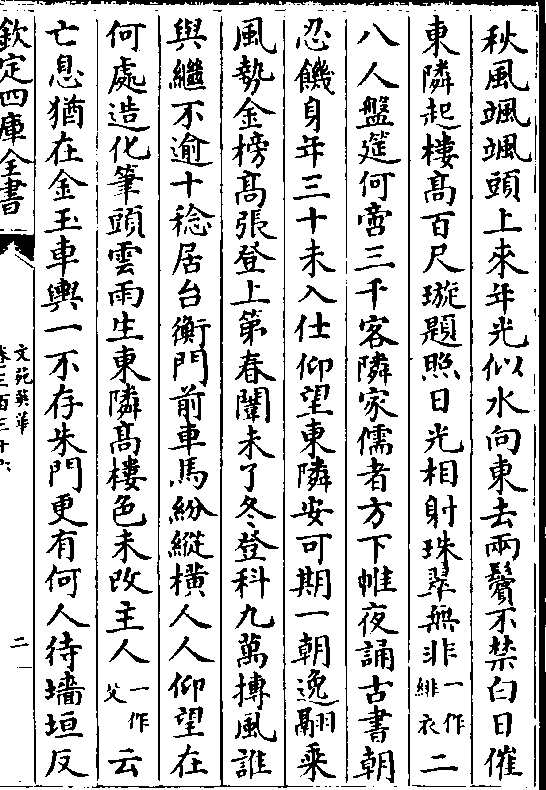 秋風颯颯頭上來年光似水向東去兩鬢不禁白日催
東隣起樓髙百尺璇題照日光相射珠翠無非一作緋衣二
八人盤筵何啻三千客隣家儒者方下帷夜誦古書朝
忍饑身年三十未入仕仰望東隣安可期一朝逸翮乗
風勢金榜髙張登上第春闈未了冬登科九萬摶風誰
與繼不逾十稔居台衡門前車馬紛縱橫人人仰望在
何處造化筆頭雲雨生東隣髙樓色未改主人一作父云
亡息猶在金玉車輿一不存朱門更有何人待墻垣反
欽定四庫全書
文苑英華
卷三百三十六
二